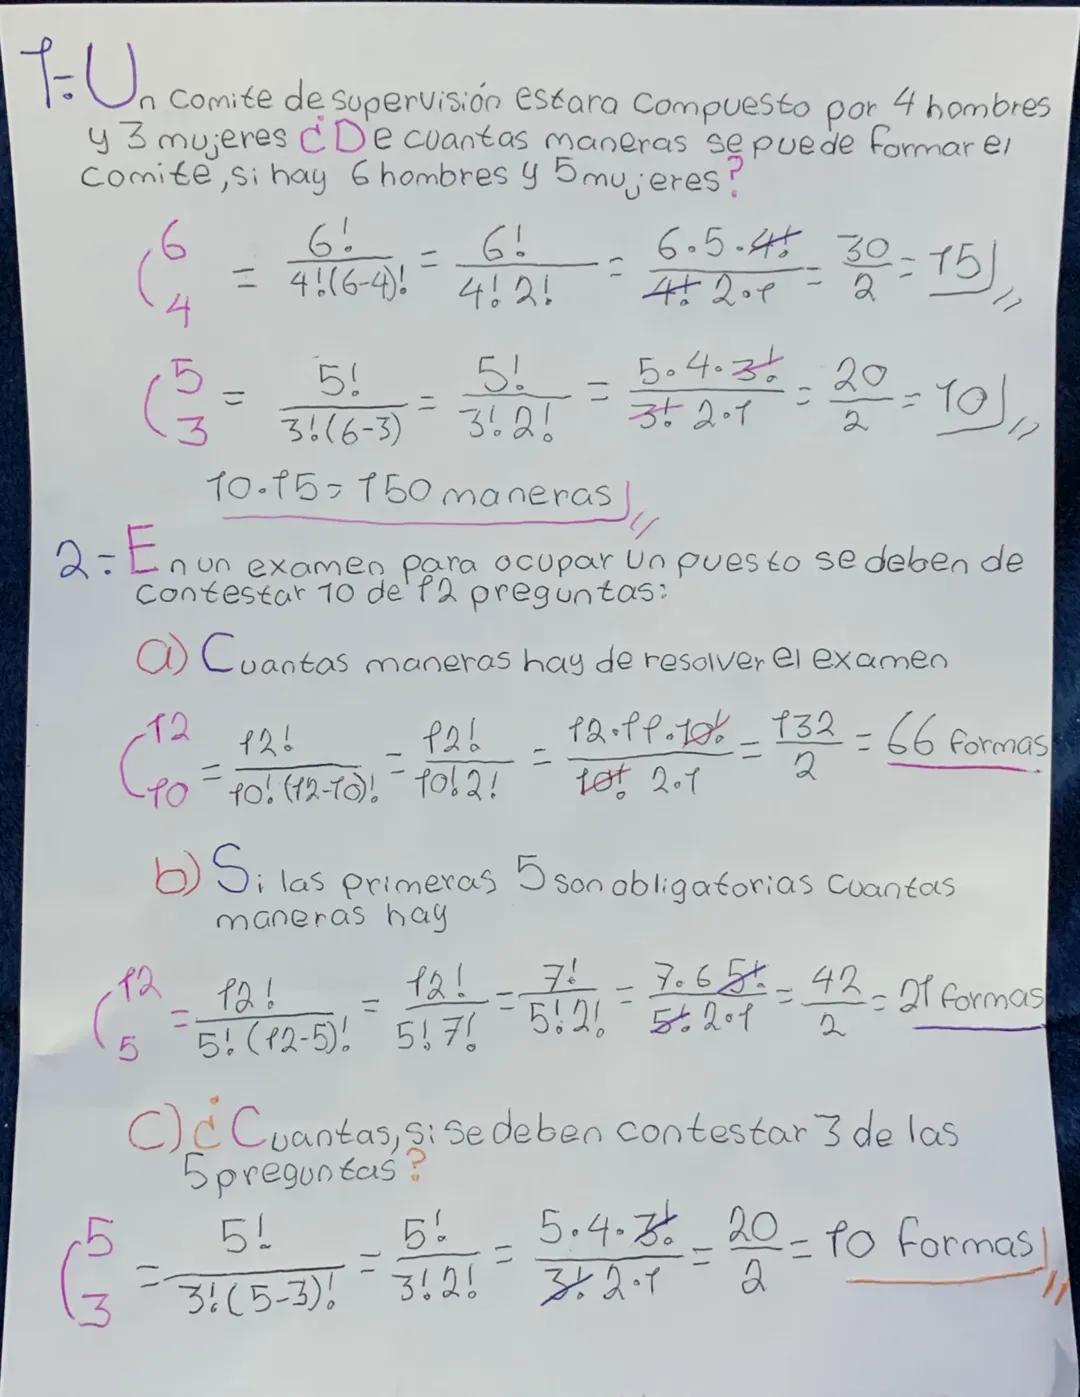 1.- Un comite de supervisión estara compuesto por 4 hombres
y 3 mujeres ¿De cuantas maneras se puede formar el
comite, si hay 6 hombres y 5 mujeres?
(6 4 = 6!/4!(6-4)! = 6!/4!2! = 6·5·4!/4!2·1 = 30/2 = 15
(5 3 = 5!/3!(6-3) = 5!/3!2! = 5·4·3!/3!2·1 = 20/2 = 10
10·15=150 maneras
2.- En un examen para ocupar un puesto se deben de
contestar 10 de 12 preguntas:
a) Cuantas maneras hay de resolver el examen
(12 10 = 12!/10!(12-10)! = 12!/10!2! = 12·11·10!/10!2·1 = 132/2 = 66 formas
b) Si las primeras 5 son obligatorias cuantas
maneras hay
(12 5 = 12!/5!(12-5)! = 12!/5!7! = 7!/5!2! = 7·6 5!/5!2·1 = 42/2 = 21 formas
C) ¿Cuantas, si se deben contestar 3 de las
5 preguntas?
(5 3 = 5!/3!(5-3)! = 5!/3!2! = 5·4·3!/3!2·1 = 20/2 = 10 formas